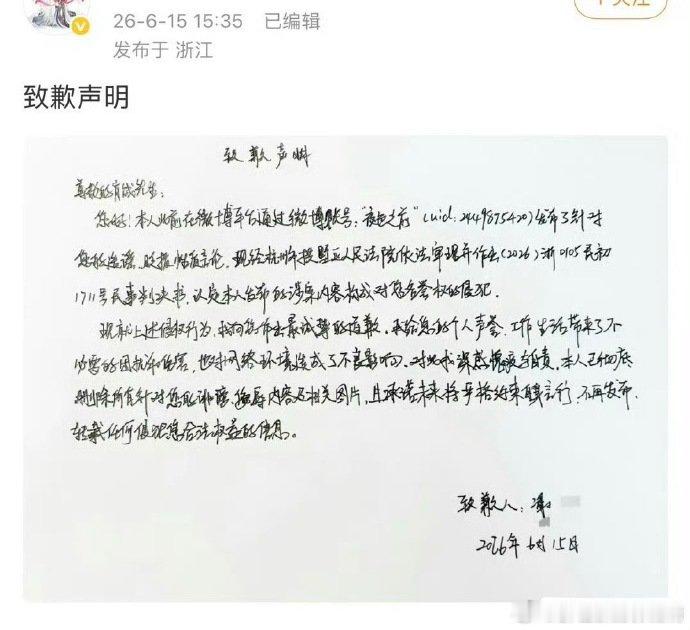 26-6-15 15:35 已编辑
发布于 浙江
致歉声明
致歉声明
尊敬的肖战先生:
您好!本人此前在微博平台通过微博账号:"夜也之前"(uid:2449875420)发布了针对
您的造谣、歧据性言论。现经杭州市拱墅区人民法院依法审理并作出(2026)浙0105民初
1711号民事判决书,认定本人发布的涉案内容构成对您名誉权的侵犯。
现就上述侵权行为,我向您作出最诚挚的道歉,我给您的个人声誉、工作生活带来了不
必要的困扰和伤害,也对网络环境造成了不良影响,对此我深感愧疚与自责。本人已彻底
删除所有针对您的诽谤、侮辱内容及相关图片,且承诺未来将严格约束自身言行,不再发布、
转载任何侵犯您合法权益的信息。
致歉人:
2026年6月15日